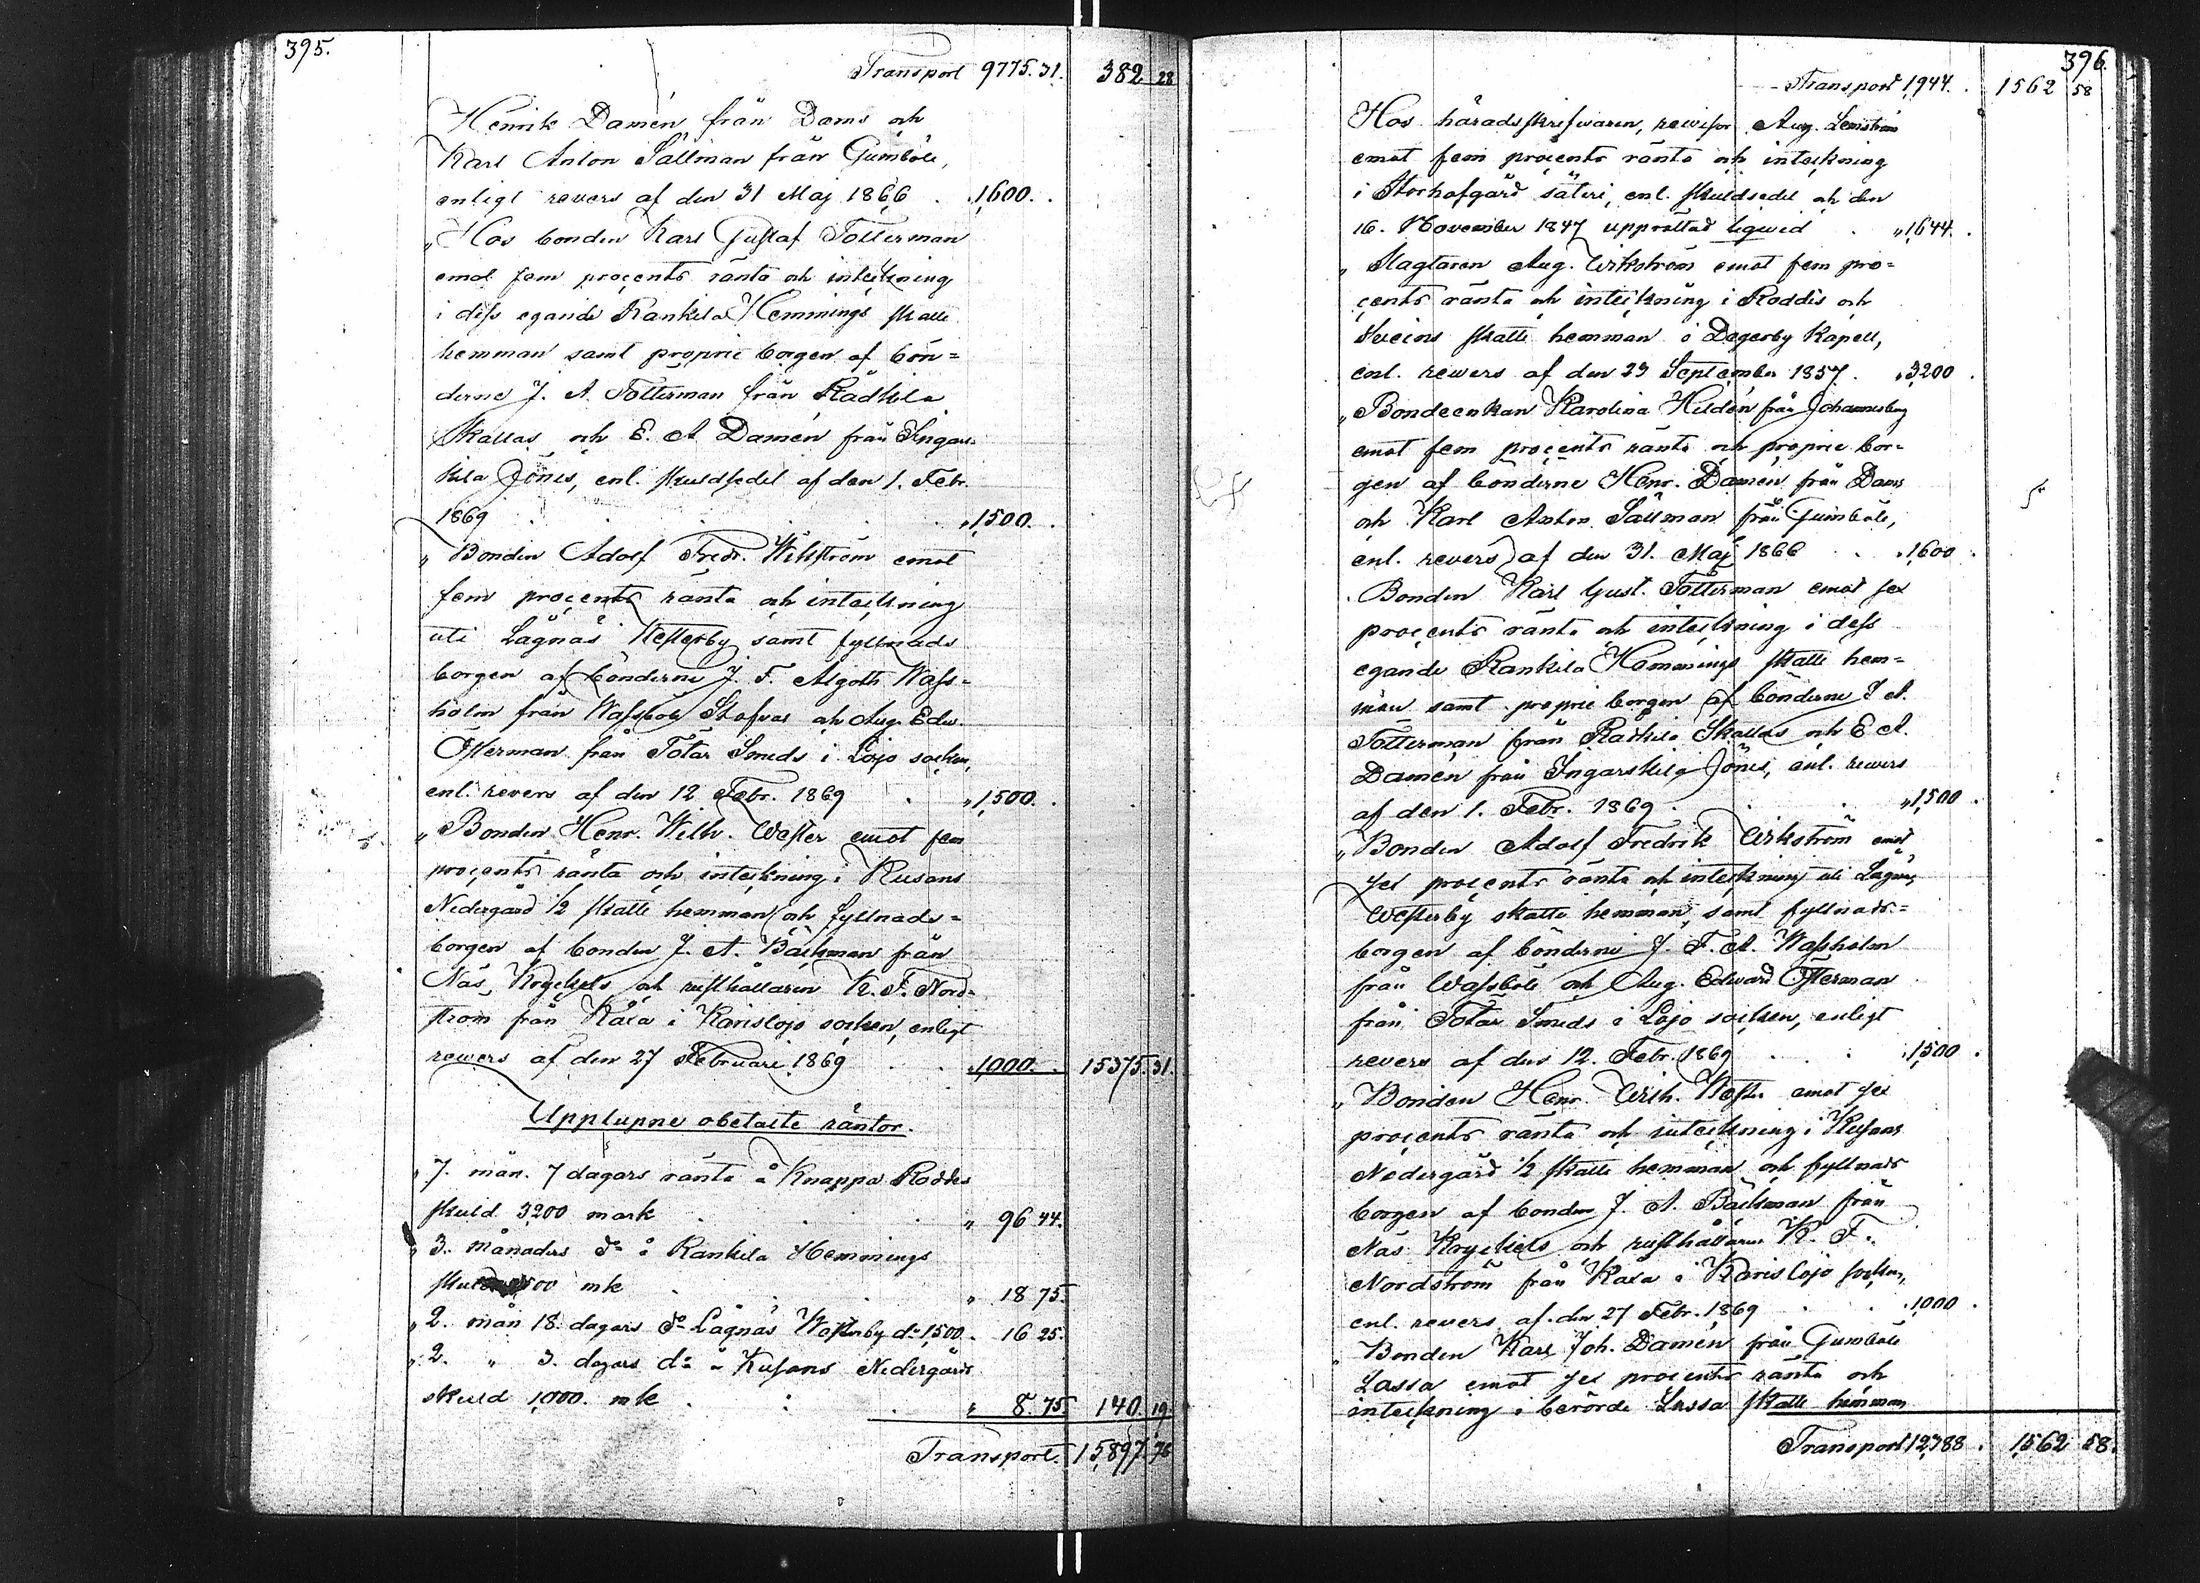 395.
Transport 9775.31. 382 28
Henrik Damén från Dams och
Karl Anton Sällman från Gumböle,
enligt revers af den 31 Maj 1866 . 1,600. .
„ Hos bonden Karl Gustaf Totterman
emot fem procents ränta och inteckning
i dess egande Rankila Hemmings skatte
hemman samt proprie borgen af bön=
derne J. A. Totterman från Rådkila
Skallas och E. A. Damén från Ingars-
kila Jönis, enl. skuldsedel af den 1. Febr.
1869 . . . . „ 1,500. .
„ Bonden Adolf Fredr. Wikström emot
fem procents ränta och inteckning
uti Lågnäs Westerby samt fyllnads
borgen af bönderne J. F. Algoth Wass=
holm från Wassböle Stafvas och Aug. Edw.
Österman från Totar Smeds i Lojo socken,
enl. revers af den 12 Febr. 1869 . „ 1,500. .
„ Bonden Henr. Wilh. Wester emot fem
procents ränta och inteckning i Kusans
Nedergård 1/2 skatte hemman och fyllnads=
borgen af bonden J. A. Bäckman från
Näs, Krejckels och rusthållaren K. F. Nord=
ström från Kåla i Karislojo socken, enligt
rewers af den 27 Februari 1869 . . „ 1,000. . 15375.31.
Upplupne obetalte räntor.
„ 7. mån. 7 dagars ränta å Knapps Roddes
skuld 3200 mark . . . „ 96 44.
„ 3. månaders do å Rankila Hemmings
skuld 1500 mk . . „ 18 75.
„ 2. mån 18. dagars do Lågnäs Westerby do 1,500. „ 16 25.
„ 2. „ 3. dagars do å Kusans Nedergårds
skuld 1,000. mk . . . „ 8. 75 140. 19
Transport. 15,897. 78
396.
Transport 1,944. . 1562 58
Hos häradsskrifwaren, rewisor Aug. Lemström
emot fem procents ränta och inteckning
i Storhofgård säteri, enl. skuldsedel och den
16. November 1847 upprättad liqwid . „ 1,644. .
„ Slagtaren Aug. Wikström emot fem pro=
cents ränta och inteckning i Roddis och
Sveins skatte hemman i Degerby Kapell,
enl. rewers af den 23 September 1857. . „ 3,200 .
„ Bondeenkan Karolina Hildén från Johannesberg
emot fem procents ränta och proprie bor=
gen af bönderne Henr. Damén från Dams
och Karl Anton Sällman från Gumböle,
enl. revers af den 31. Maj 1866 . . „ 1,600 .
„ Bonden Karl Gust. Totterman emot sex
procents ränta och inteckning i dess
egande Rankila Hemmings skatte hem=
man samt proprie borgen af bönderne J. A.
Totterman från Rådkila Skallas och E. A.
Damén från Ingarskila Jönis, enl. rewers
af den 1. Febr. 1869 . . . „ 1,500 .
„ Bonden Adolf Fredrik Wikström emot
sex procents ränta och inteckning uti Lågnäs
Westerby skatte hemman, samt fyllnads=
borgen af bönderne J. F. A. Wassholm
från Wassböle och Aug. Edward Österman
från Totar Smeds i Lojo socken, enligt
revers af den 12. Febr. 1869 . . . „ 1,500 .
„ Bonden Henr. Wilh. Wester emot sex
procents ränta och inteckning i Kusans
Nedergård 1/2 skatte hemman och fyllnads
borgen af bonden J. A. Bäckman från
Näs Krejckels och rusthållaren K. F.
Nordström från Kåla i Karislojo socken,
enl. revers af den 27 Febr. 1869 . . . „ 1,000 .
„ Bonden Karl Joh. Damén från Gumböle
Lassa emot sex procents ränta och
inteckning i berörde Lassa skatte hemman
Transport 12,388 . 1,562 58.